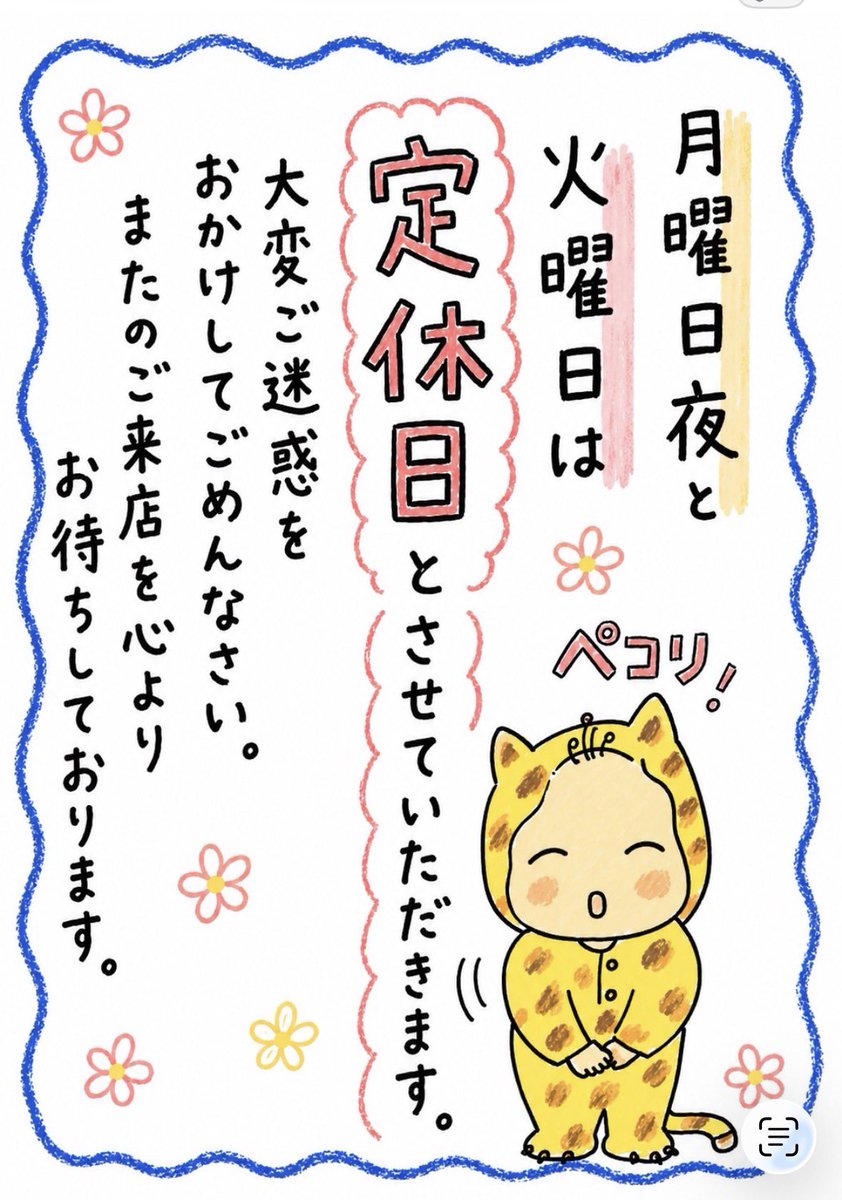 月曜日夜と
火曜日は
定休日とさせていただきます。
大変ご迷惑を
おかけしてごめんなさい。
またのご来店を心より
お待ちしております。
ペコリ!